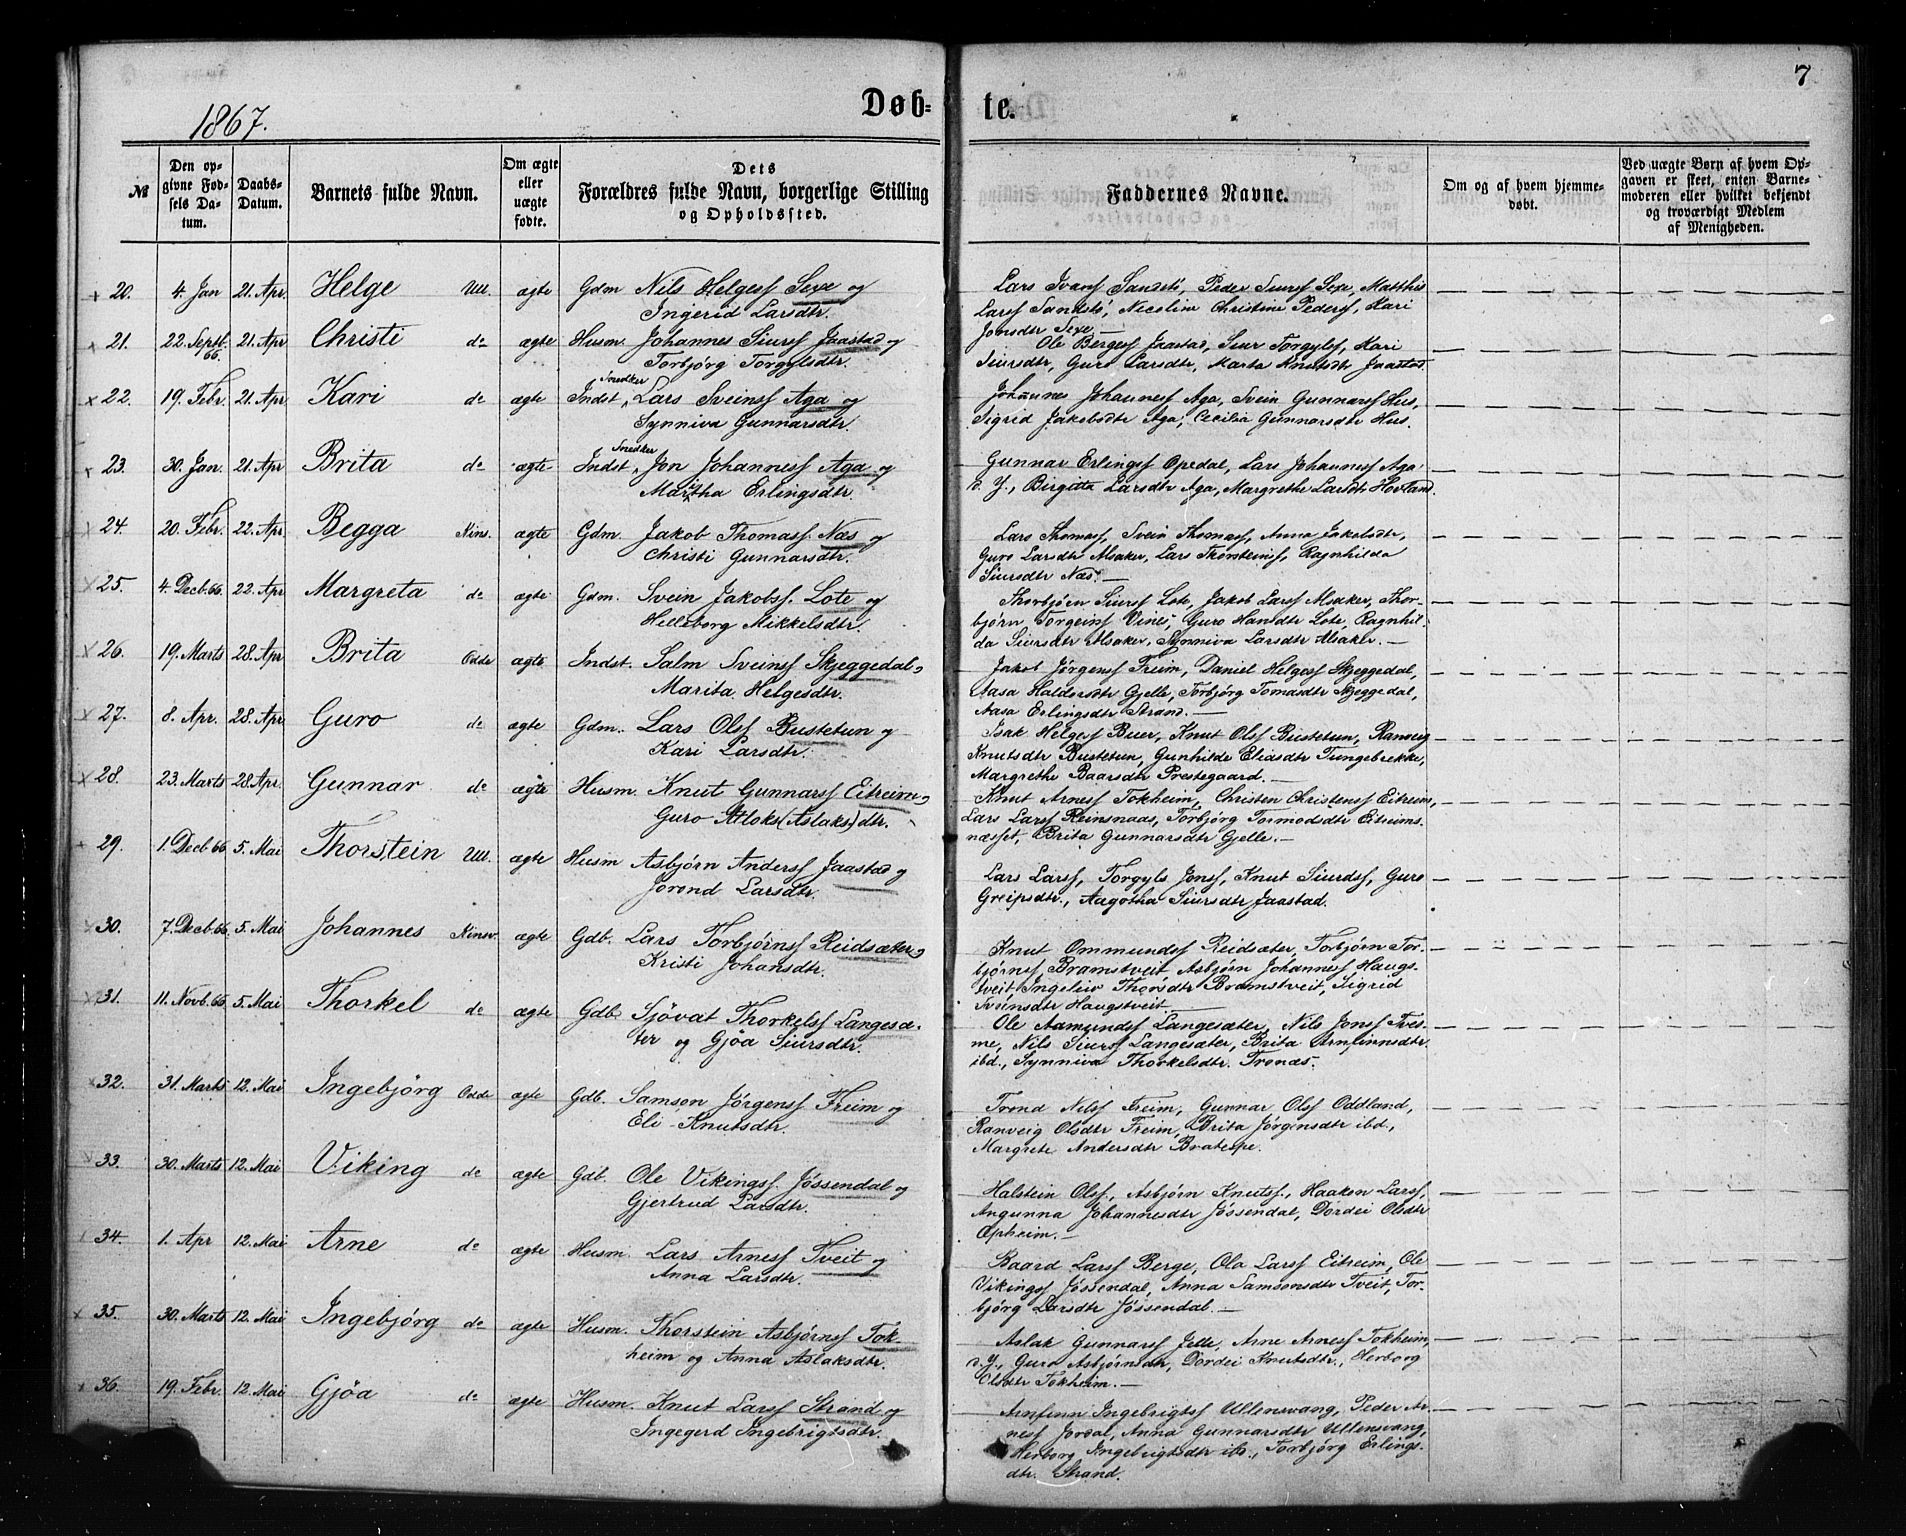 7
1867.
Døb-
te.
№
Den op-
givne Fød-
sels Da-
tum.
Daabs-
Datum.
Barnets fulde Navn.
Om ægte
eller
uægte
fødte.
Dets
Forældres fulde Navn, borgerlige Stilling
og Opholdssted.
Faddernes Navne.
Om og af hvem hjemme-
døbt.
Ved uægte Børn af hvem Op-
gaven er skeet, enten Barne-
moderen eller hvilket bekjendt
og troværdigt Medlem
af Menigheden.
20. 4. Jan 21. Apr. Helge Ull. ægte Gdm Nils Helgesf Sexe og
Ingerid Larsdtr.
Lars Ivarsf Sandstø, Peder Siursf Sexe, Matthis
Larsf Sandstø, Nicoline Christine Pedersf, Kari
Jonsdtr Sexe. —
21. 22. Septb. 66. 21. Apr Christi do ægte Husm. Johannes Siursf Jaastad og
Torbjørg Torgylsdtr.
Ole Bergesf Jaastad, Siur Torgylsf, Kari
Siursdtr, Guro Larsdtr, Marta Knutsdtr Jaastad.
22. 19. Febr. 21. Apr Kari do ægte Indst. Snedker Lars Sveinsf Aga og
Synniva Gunnarsdtr.
Johannes Johannesf Aga, Svein Gunnarsf Hus,
Sigrid Jakobsdtr Aga, Cecilia Gunnarsdtr Hus.
23. 30. Jan. 21. Apr Brita do ægte Indst. Snedker Jon Johannesf Aga og
Martha Erlingsdtr.
Gunnar Erlingsf Opedal, Lars Johannesf Aga
d. Y., Birgitta Larsdtr Aga, Margrethe Larsdtr Hovland.
24. 20. Febr. 22. Apr Begga Kins. ægte Gdm. Jakob Thomasf Næs og
Christi Gunnarsdtr.
Lars Thomasf, Svein Thomasf, Anna Jakobsdtr,
Guro Larsdtr Alsaker, Lars Thorsteinsf, Ragnhilda
Siursdtr Næs. —
25. 4. Decb. 66. 22. Apr Margreta do ægte Gdm. Svein Jakobsf. Lote og
Helleborg Mikkelsdtr.
Thorbjørn Siursf Lote, Jakob Larsf Alsaker, Thor-
bjørn Torgeirsf Vines, Guro Hansdtr Lote, Ragnhil-
da Siursdtr Alsaker, Synniva Larsdtr Alsaker. —
26. 19. Marts 28. Apr Brita Odde ægte Indst. Salm Sveinsf Skjeggedal
Marita Helgesdtr.
Jakob Jørgensf Freim, Daniel Helgesf Skjeggedal,
Aasa Haldorsdtr Gjelle, Torbjørg Tomasdtr Skjeggedal,
Aasa Erlingsdtr Strand. —
27. 8. Apr. 28. Apr Guro do ægte Gdm. Lars Olsf Bustetun og
Kari Larsdtr.
Isak Helgesf Buer, Knut Olsf Bustetun, Ranveig
Knutsdtr Bustetun, Gunhilde Eliasdtr Tungebrekke,
Margrethe Baarsdtr Prestegaard. —
28. 23. Marts 28. Apr. Gunnar do ægte Husm Knut Gunnarsf Eitreim
Guro Atloks (Aslaks) dtr.
Knut Arnesf Tokheim, Christen Christensf Eitreim,
Lars Larsf Reinsnaas, Torbjørg Tormodsdtr Eitreims-
næsset, Brita Gunnarsdtr Gjelle. —
29. 1. Decb 66 5. Mai Thorstein Ull. ægte Husm Asbjørn Andersf Jaastad og
Jorond Larsdtr.
Lars Larsf, Torgyls Jonsf, Knut Siurdsf, Guro
Greipsdtr., Aagotha Siursdtr Jaastad.
30. 7. Decb. 66. 5. Mai Johannes Kinsv. ægte Gdb. Lars Torbjørnsf Reidsæter
Kristi Johansdtr.
Knut Ommundsf Reidsæter, Torbjørn Tor-
bjørnsf Bramstveit Asbjørn Johannesf Haugs-
tveit Ingeleiv Thorsdtr Bramstveit, Sigrid
Sveinsdtr Haugstveit —
31. 11. Novb. 66 5. Mai Thorkel do ægte Gdb. Sjøvat Thorkelsf Langesæ-
ter og Gjøa Siursdtr.
Ole Aamundsf Langesæter, Nils Jonsf Tves-
me, Nils Siursf Langesæter, Brita Arnfinnsdtr
ibd., Synniva Thorkelsdtr. Tronæs.
32. 31. Marts 12. Mai Ingebjørg Odde ægte Gdb. Samson Jørgensf Freim og
Eli Knutsdtr.
Trond Nilsf Freim, Gunnar Olsf Oddland,
Ranveig Olsdtr Freim, Brita Jørgensdtr ibd.,
Margrete Andersdtr Bratespe.
33. 30. Marts 12. Mai Viking do ægte Gdb. Ole Vikingsf. Jøssendal og
Gjertrud Larsdtr.
Halstein Olsf., Asbjørn Knutsf., Haakon Larsf,
Angunna Johannesdtr Jøssendal, Dordei Olsdtr
Opheim. —
34. 1. Apr 12. Mai Arne do ægte Husm. Lars Arnesf Tveit og
Anna Larsdtr.
Baard Larsf Berge, Ola Larsf Eitreim, Ole
Vikingsf Jøssendal, Anna Samsonsdtr Tveit, Tor-
bjørg Larsdtr Jøssendal. —
35. 30. Marts 12. Mai Ingebjørg do ægte Husm. Thorstein Asbjørnsf Tok-
heim og Anna Aslaksdtr.
Aslak Gunnarsf Jelle, Arne Arnesf Tokheim,
d. Y., Guro Asbjørnsdtr, Dordei Knutsdtr., Herborg
Olsdtr Tokheim. —
36. 19. Febr. 12. Mai Gjøa do ægte Husm. Knut Larsf Strand og
Ingegerd Ingebrigtsdtr.
Arnfinn Ingebrigtsf Ullensvang, Peder Ar-
nesf Jordal, Anna Gunnarsdtr Ullensvang,
Herborg Ingebrigtsdtr ib., Torbjørg Erlings-
dtr. Strand.